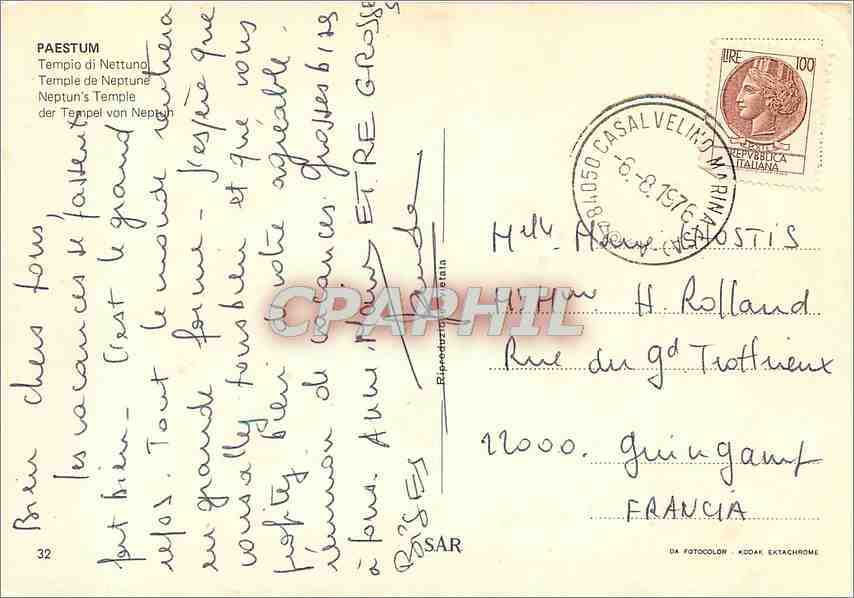 PAESTUM
Tempio di Nettuno
Temple de Neptune
Neptun's Temple
der Tempel von Neptun
Bien chers tous,
les vacances se passent
fort bien - C'est le grand
repos. Tout le monde rentrera
en grande forme - J'espère que
vous allez tous bien et que vous
profitez bien de votre agréable
réunion de vacances. Grosses bises
à tous. Anne-Marie ET TRE GROSSES
BAISES
Riproduzione vietata
32
S.A.R
LIRE 100
REPVBBLICA
ITALIANA
84050 CASALVELINO MARINA (SA)
-6-8.1976
Melle Marie
M. Mme H. Rolland
Rue du gd Trottrieux
22000. Guingamp
FRANCIA
DA FOTOCOLOR - KODAK EKTACHROME
CPAPHIL